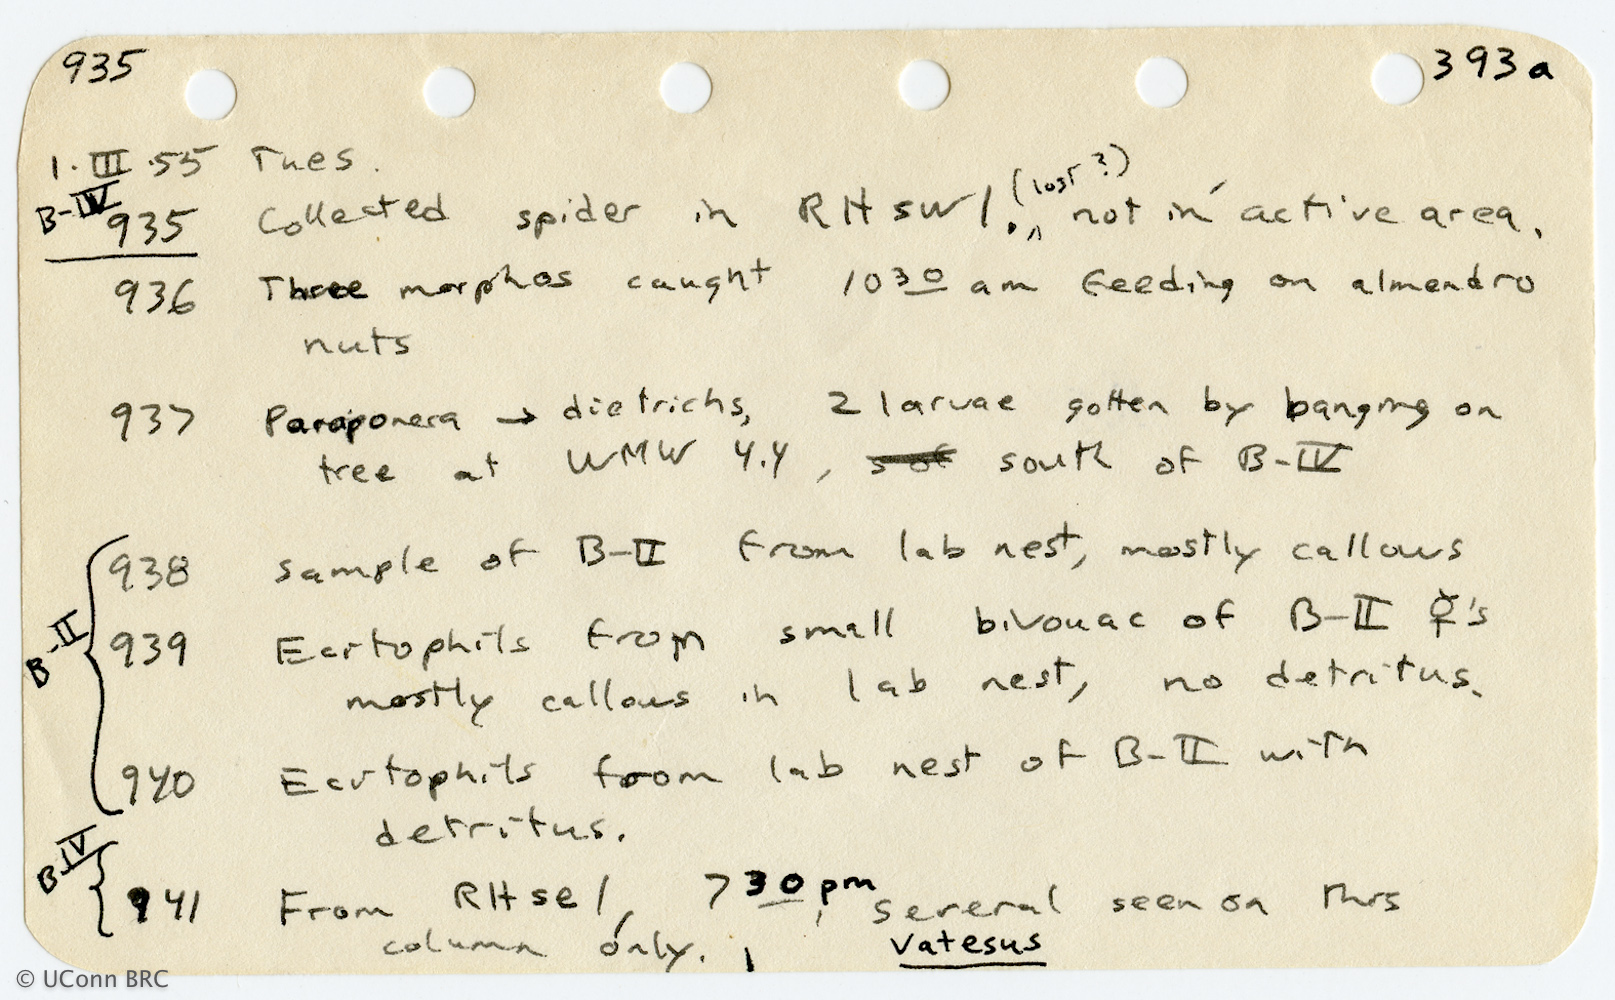 935 393a
1.III.55 Tues.
(lost?)
B-IV 935 Collected spider in RHsw1. ^ not in active area.
936 Three morphos caught 10 30 am feeding on almendro
nuts
937 Paraponera → dietrichs, 2 larvae gotten by banging on
tree at WMW 4.4, s of south of B-IV
B-II
938 sample of B-II from lab nest, mostly callows
939 Ecitophils from small bivouac of B-II ☿'s
mostly callows in lab nest, no detritus.
940 Ecitophils from lab nest of B-II with
detritus.
B-IV
941 From RHse1, 7 30 pm, several seen on this
column only. 1 Vatesus
© UConn BRC